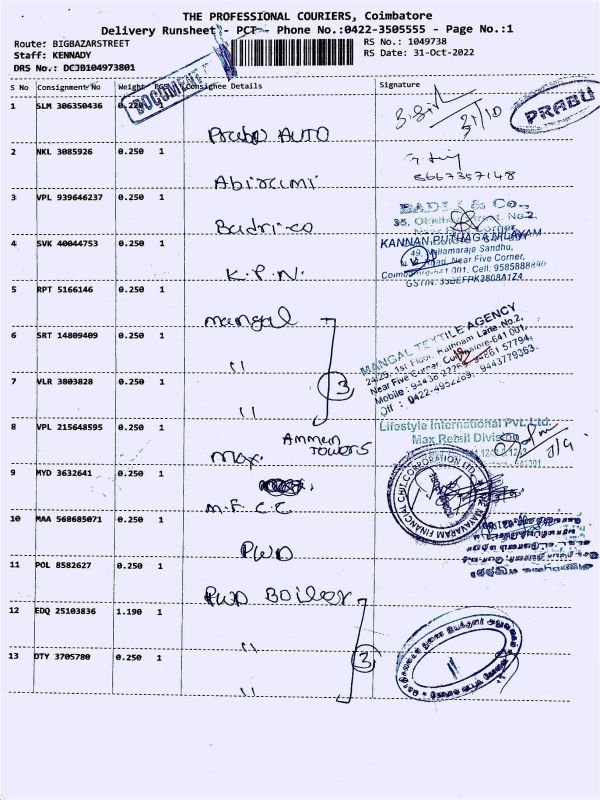 THE PROFESSIONAL COURIERS, Coimbatore
Delivery Runsheet - PCT - Phone No.:0422-3505555 - Page No.:1
Route: BIGBAZARSTREET RS No.: 1049738
Staff: KENNADY RS Date: 31-Oct-2022
DRS No.: DCJB104973801
DOCUMENT
S No Consignment No Weight PCS Consignee Details Signature
1 SLM 306350436 0.220 1
31/10
PRABU
Prabu AUTO
2 NKL 3085926 0.250 1
8667357148
Abirami
3 VPL 939646237 0.250 1
BADRI & Co.,
Badri-co
4 SVK 40044753 0.250 1
KANNAN PUTHAGA NILAYAM
49, Vellamaraja Sandhu,
Near Five Corner,
Coimbatore-641 001. Cell: 9585888890
GSTIN: 33BEFPK3808A1Z4
K.P.N.
5 RPT 5166146 0.250 1
mangal
MANGAL TEXTILE AGENCY
24/25, 1st Floor, Rathnam Lane No.2,
Near Five Corner, Coimbatore-641 001.
Off : 0422-4952269, 9443779363.
6 SRT 14809409 0.250 1
"
7 VLR 3803828 0.250 1
"
3
8 VPL 215648595 0.250 1
Lifestyle International Pvt. Ltd.
Max Retail Division
Ammen
TOWERS
Max.
9 MYD 3632641 0.250 1
THE MAYAVARAM FINANCIAL CHIT CORPORATION LTD.
M.F.C.C
10 MAA 568685071 0.250 1
PWD
11 POL 8582627 0.250 1
PWD Boiler
12 EDQ 25103836 1.190 1
"
3
13 DTY 3705780 0.250 1
"